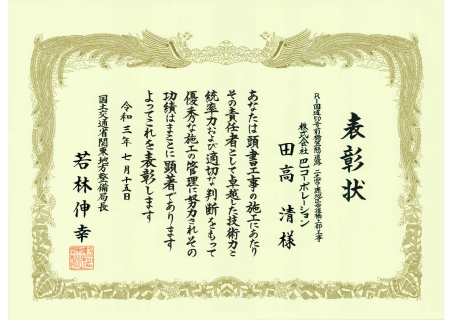 表彰状
R1国道50号前橋笠懸道路
株式会社 巴コーポレーション
田高 清 様
あなたは頭書工事の施工にあたり
その責任者として卓越した技術力と
統率力および適切な判断をもって
優秀な施工の管理に努力されその
功績はまことに顕著であります
よってこれを表彰します
令和三年七月十五日
国土交通省関東地方整備局長
若林伸幸